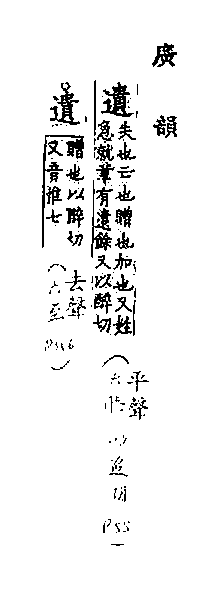 廣韻
遺
失也亡也贈也加也又姓
急就章有遺餘又以醉切
(平聲
六脂 以追切 P55
遺
贈也以醉切
又音惟七
(去聲
六至